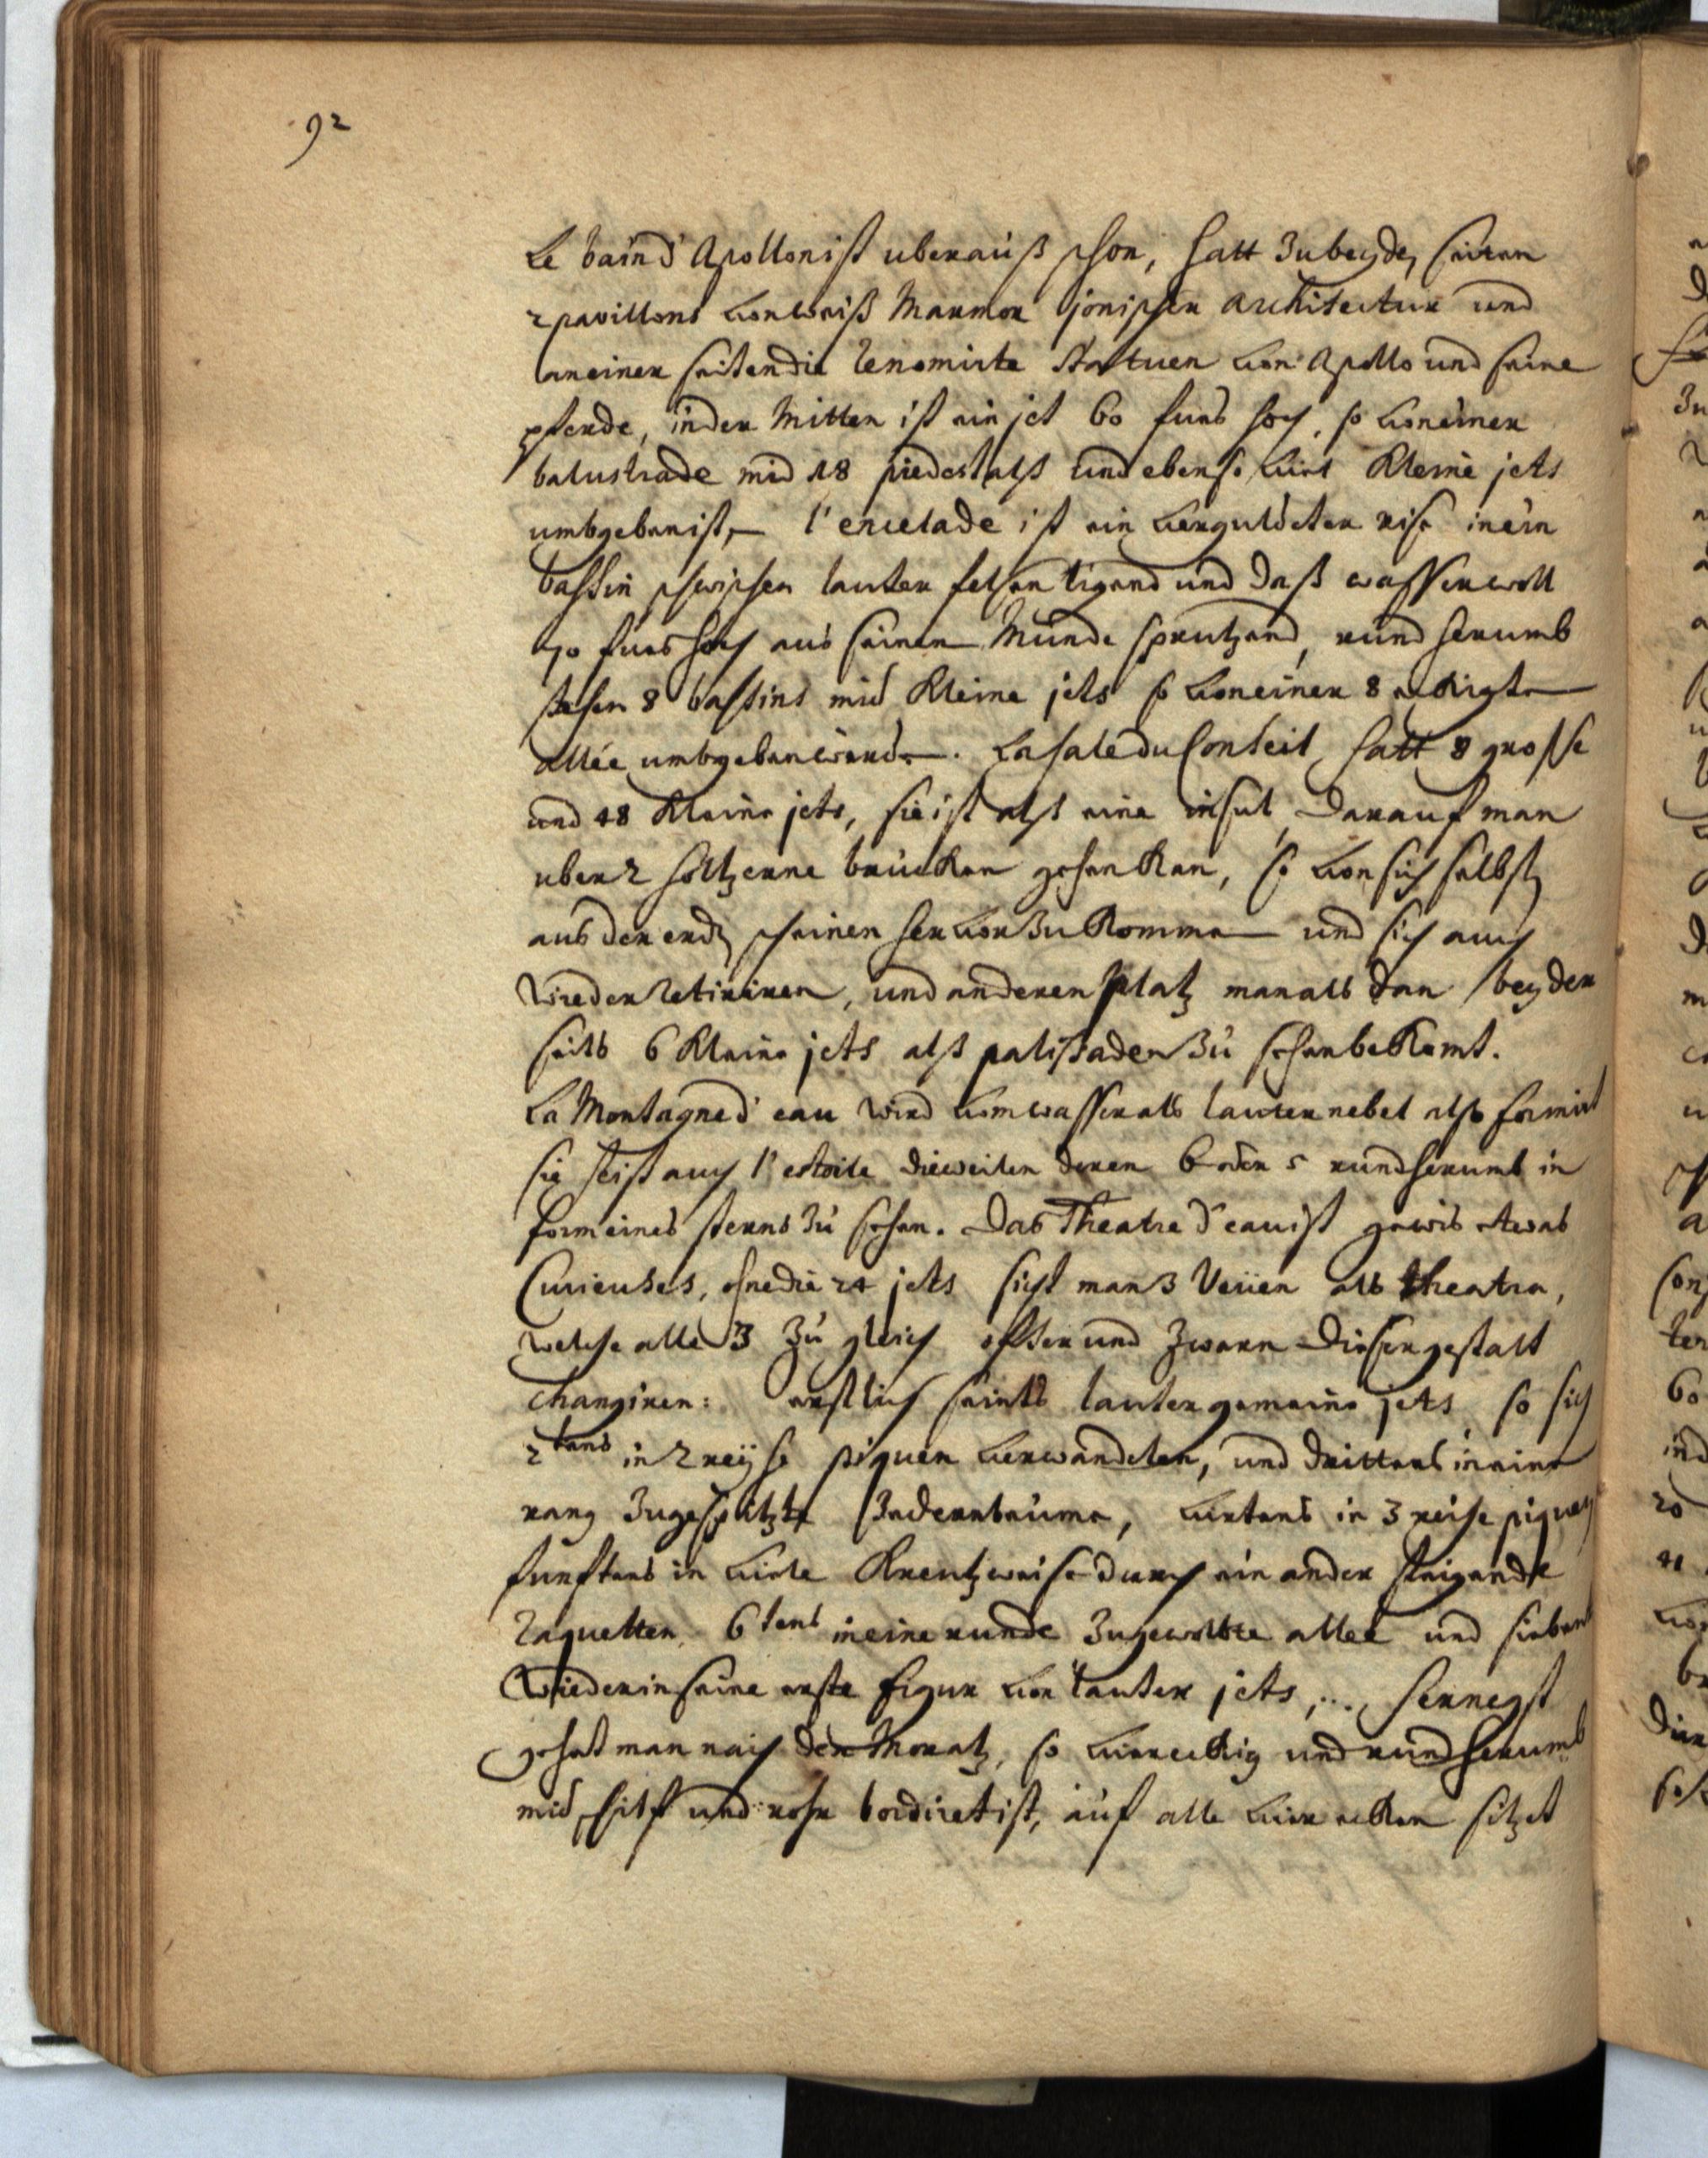 92
Le bain d'Apollon ist uberauß schon, hatt zu beyden seiten
2 pavillons von weiß Marmor jonischer architectur und
an einer seiten die renomirte statuen von Apollo und seine
pferde, in der Mitten ist ein jet 60 fues hoch, so von einer
balustrade mid 48 piedestalß und ebenso viel kleine jets
umbgeben ist, l'encelade ist ein verguldeter rise in ein
bassin zwischen lauter felsen ligend und daß wasser woll
70 fues hoch aus seinem Munde sprutzend, rund herumb
stehen 8 bassins mid kleine jets so von einer 8 eckigte
allée umbgeben werden. La sale du Conseil hatt 8 grosse
und 48 kleine jets, sie ist alß eine insul, darauf man
uber 2 höltzerne brücken gehen kan, so von sich selbst
aus der erde scheinen hervor zu kommen und sich auch
wieder retiriren, und an deren platz man als dan beyder
seits 6 kleine jets alß palisaden zu sehen bekomt.
La Montagne d'eau wird vom wasser als lauter nebel also formirt
sie heist auch l'estoile dieweilen deren 6 oder 5 rund herumb in
form eines sterns zu sehen. Das Theatre d'eau ist gewis etwas
Curieuses, ohne die 24 jets siht man 3 Veüen als theatra,
welche alle 3 zu gleich offter und zwaren dieser gestalt
changiren: erstlich seints lauter gemeine jets, so sich
2tens in 2 reyhe piquen verwandelen, und drittens in eine
rang zugespitzte Zedernbäume, viertens in 3 reihe piquen
funftens in viele Kreutzweise durch ein ander steigende
raquetten, 6tens in eine runde zugewolbte allee und siebent
wieder in seine erste figur von lauter jets, . hernegst
gehet man nach der Moratz, so viereckig und rund herumb
mid schilf und rohr bordiret ist, auf alle vier ecken sitzet